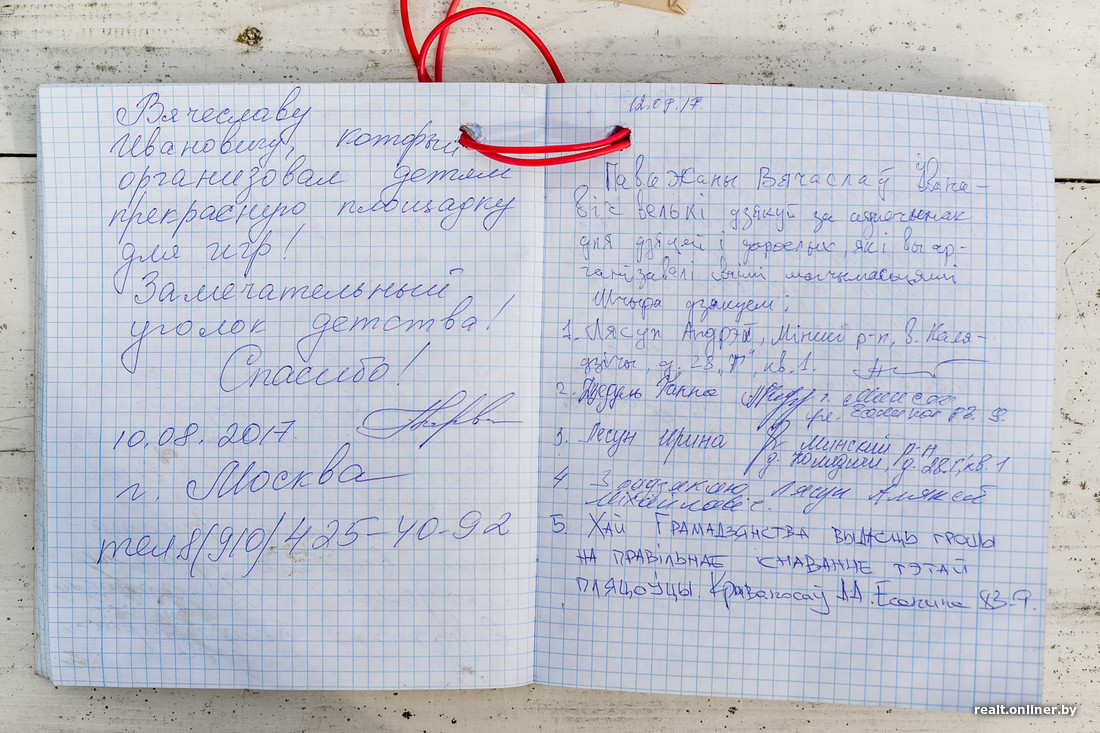 Вячеславу
Ивановичу, который
организовал детям
прекрасную площадку
для игр!
Замечательный
уголок детства!
Спасибо!
10.08.2017
г. Москва
тел 8(910)425-40-92
12.09.17.
Паважаны Вячаслаў Iвана-
віч велькі дзякуй за адпачынак
для дзяцей і дарослых, які вы ар-
ганізавалі сваімі магчымасцямі
Шчыра дзякуем:
1. Лясун Андрэй, Мінскі р-н, в. Каля-
дзічы, д. 28 "Г", кв. 1.
2. Ганна г. Минск
3. Лесун Ирина Минский р-н
д. Колядичи, д. 28Г, кв. 1
4. З падзякаю Лясун Аляксей
Міхайлавіч.
5. Хай грамадзянства выдасць грошы
на правільнае існаванне гэтай
пляцоўцы. Крываносаў А.А. Есенина 83-9.
realt.onliner.by